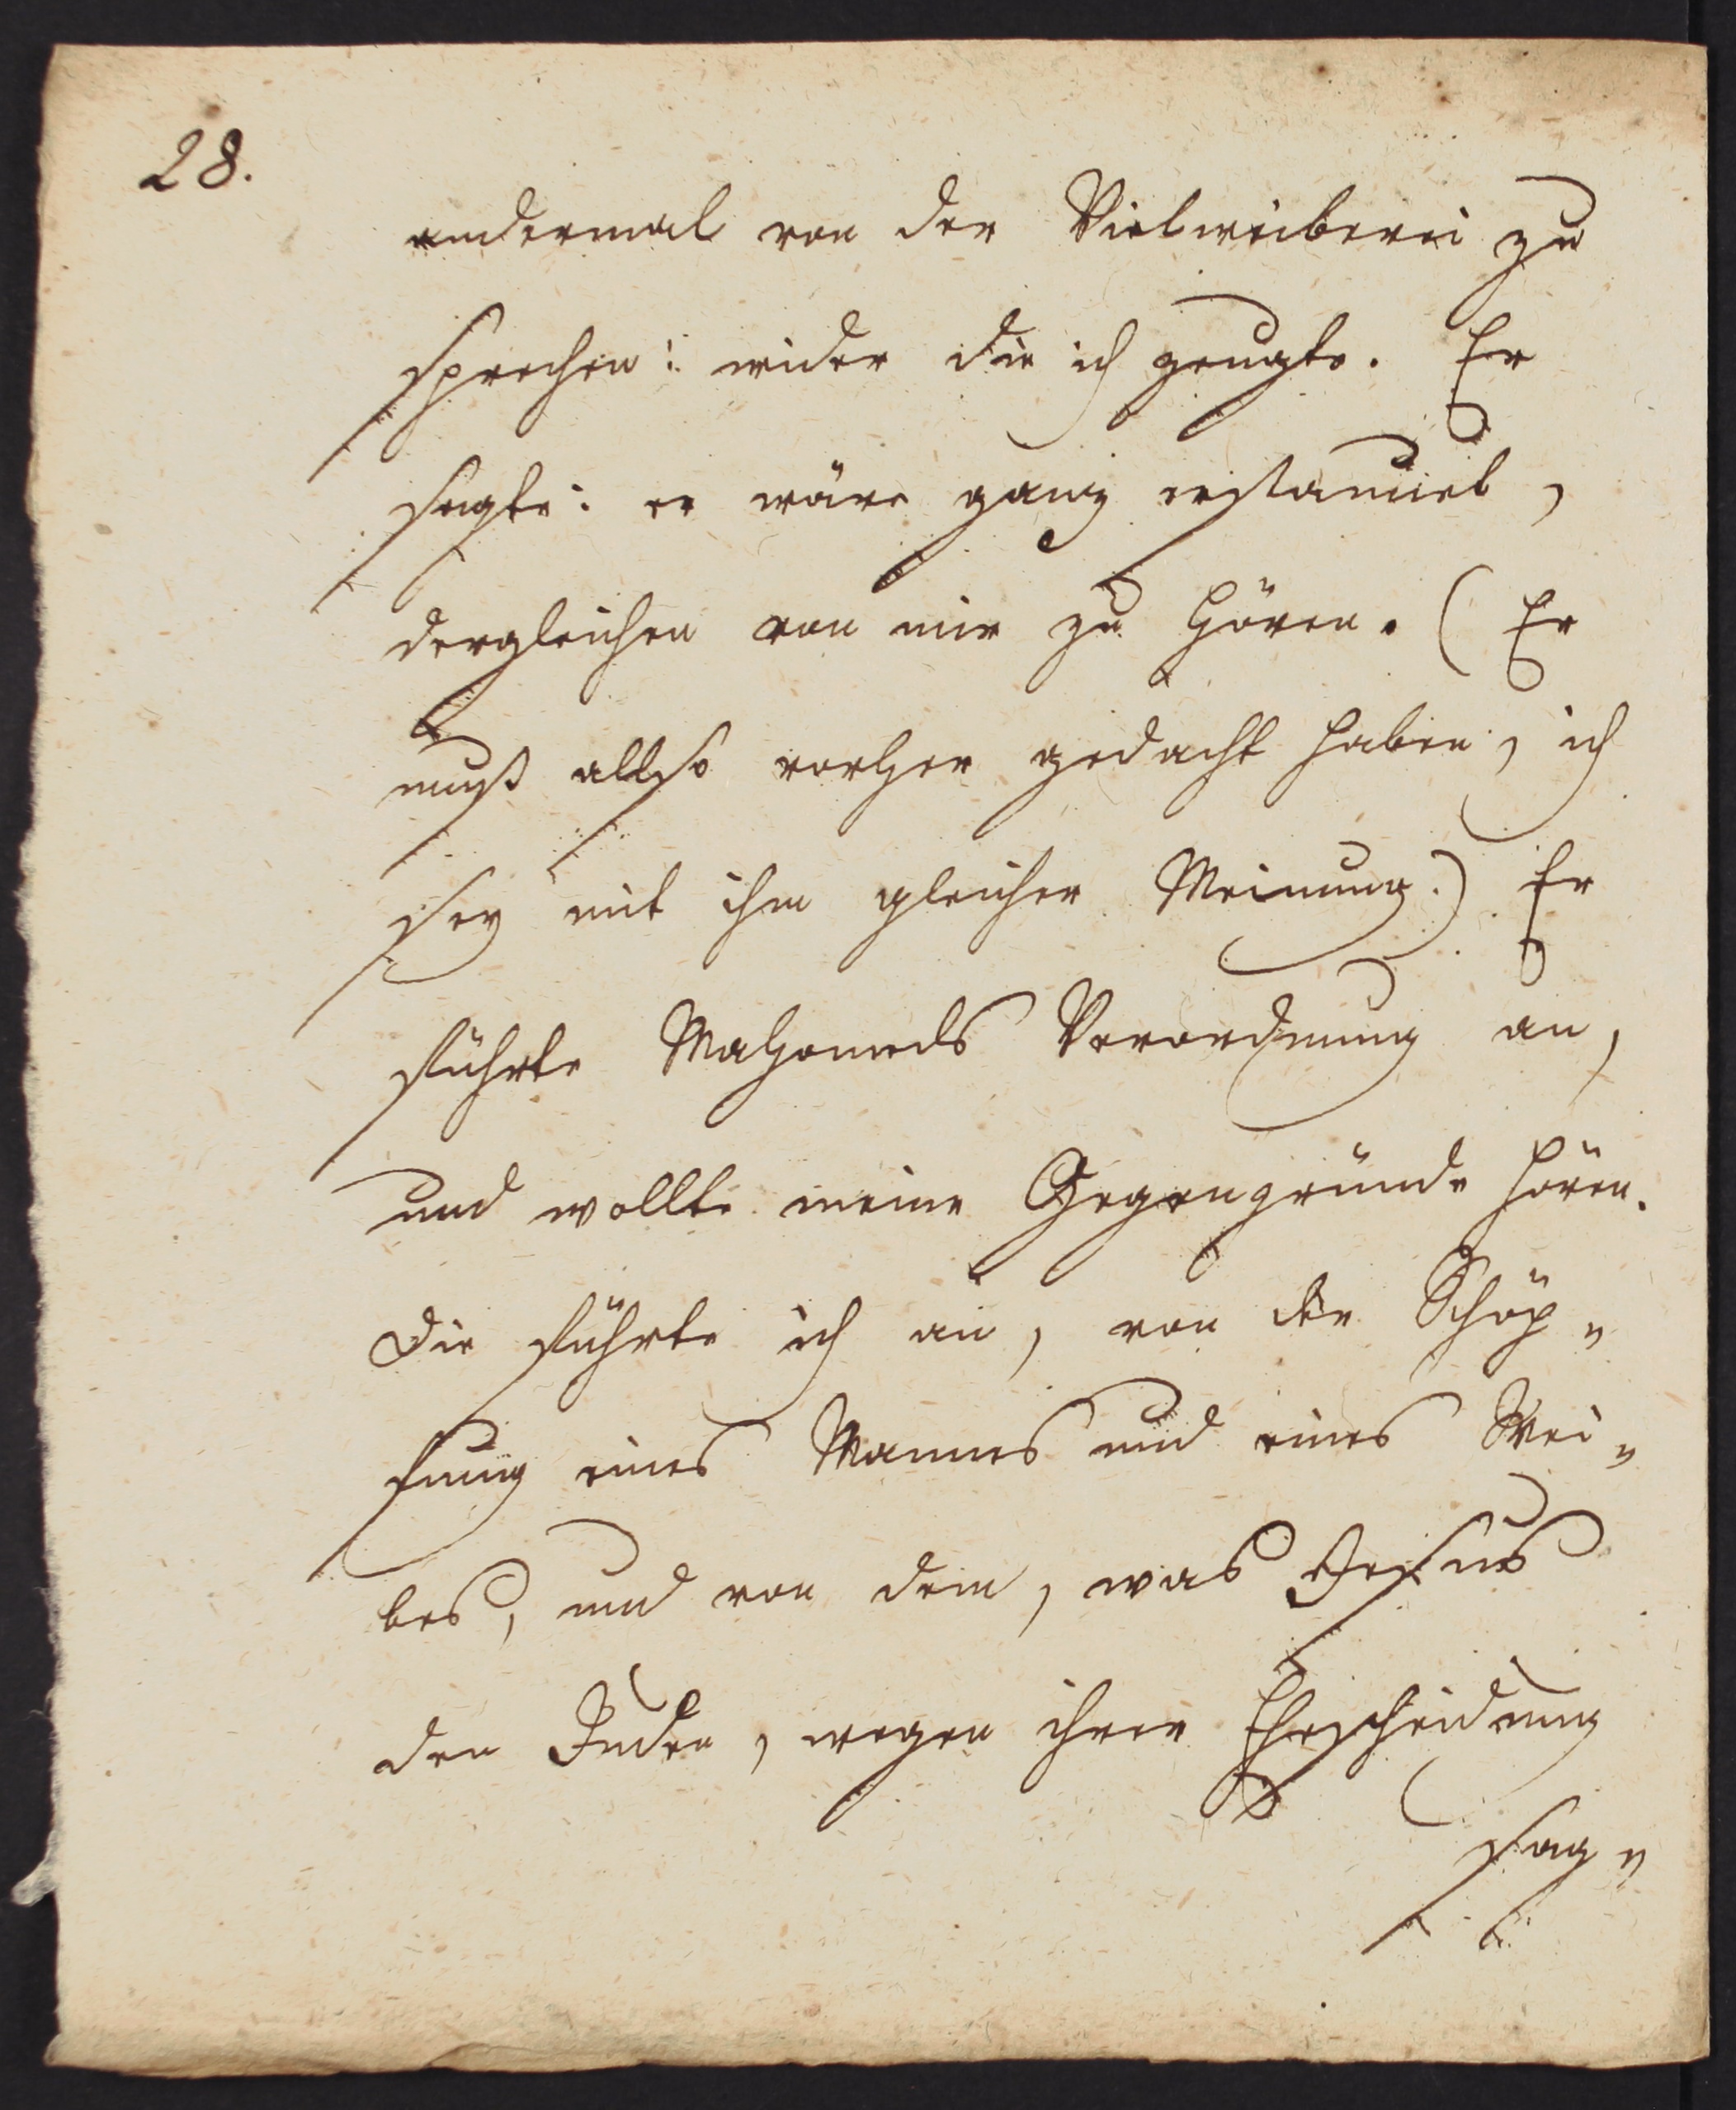 28.
andermal von der Vielweiberei zu
sprechen: wider die ich zeugte. Er
sagte: er wäre ganz erstaunet,
dergleichen von mir zu hören. (Er
muß allso vorher gedacht haben, ich
sey mit ihm gleicher Meinung.) Er
führte Mahomeds Verordnung an,
und wollte meine Gegengründe hören.
Die führte ich an, von der Schöp„
fung eines Mannes und eines Wei„
bes, und von dem, was Jesus
den Juden, wegen ihrer Ehescheidung
sag„